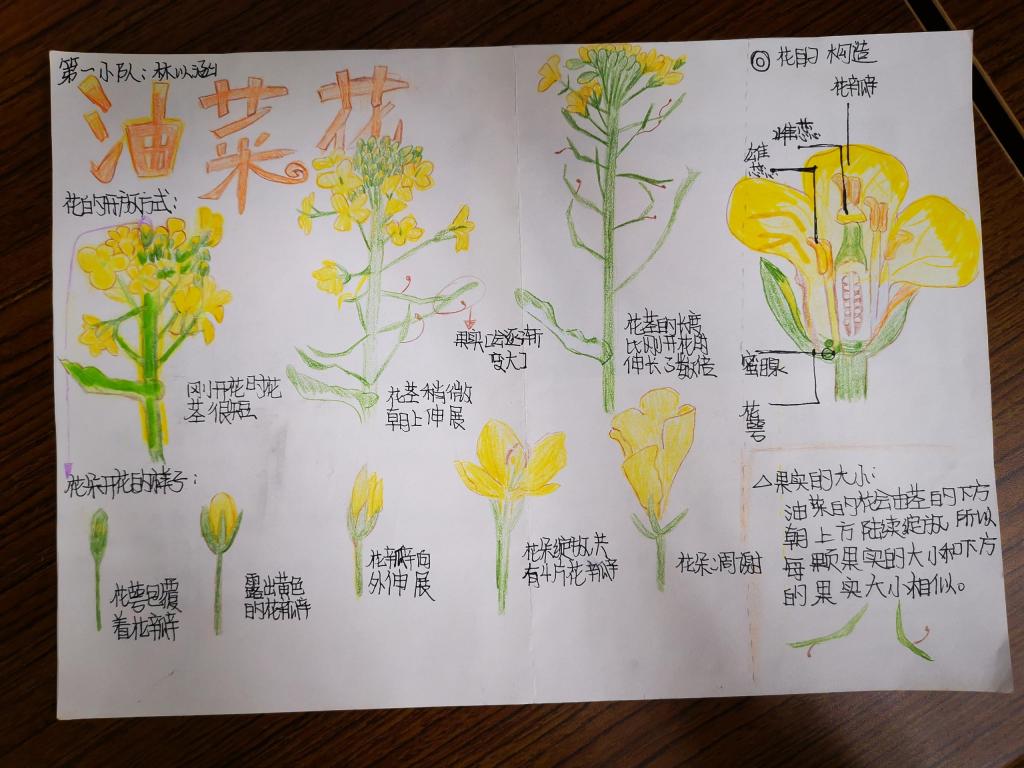 第一小队：林以涵
油菜花
花的开放方式：
刚开花时花
茎很短
花茎稍微
朝上伸展
果实[会逐渐
变大]
花茎的长度
比刚开花的
伸长了数倍
花朵开花的样子：
花萼包覆
着花瓣
露出黄色
的花瓣
花瓣向
外伸展
花朵绽放共
有4片花瓣
花朵凋谢
◎ 花的构造
花瓣
雌蕊
雄
蕊
蜜腺
花
萼
△果实的大小：
油菜的花会由茎的下方
朝上方陆续绽放所以
每颗果实的大小和下方
的果实大小相似。